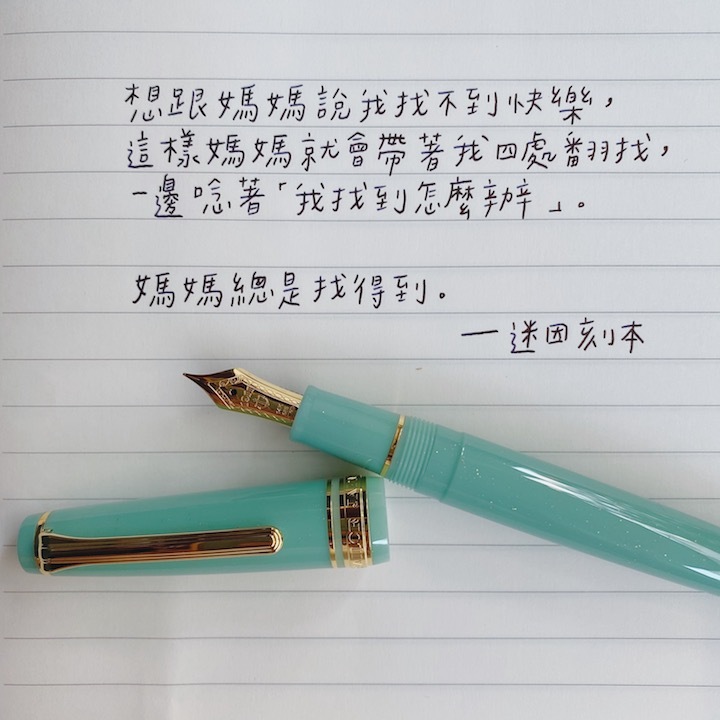 想跟媽媽說我找不到快樂，
這樣媽媽就會帶著我四處翻找，
一邊唸著「我找到怎麼辦」。
媽媽總是找得到。
—迷因刻本